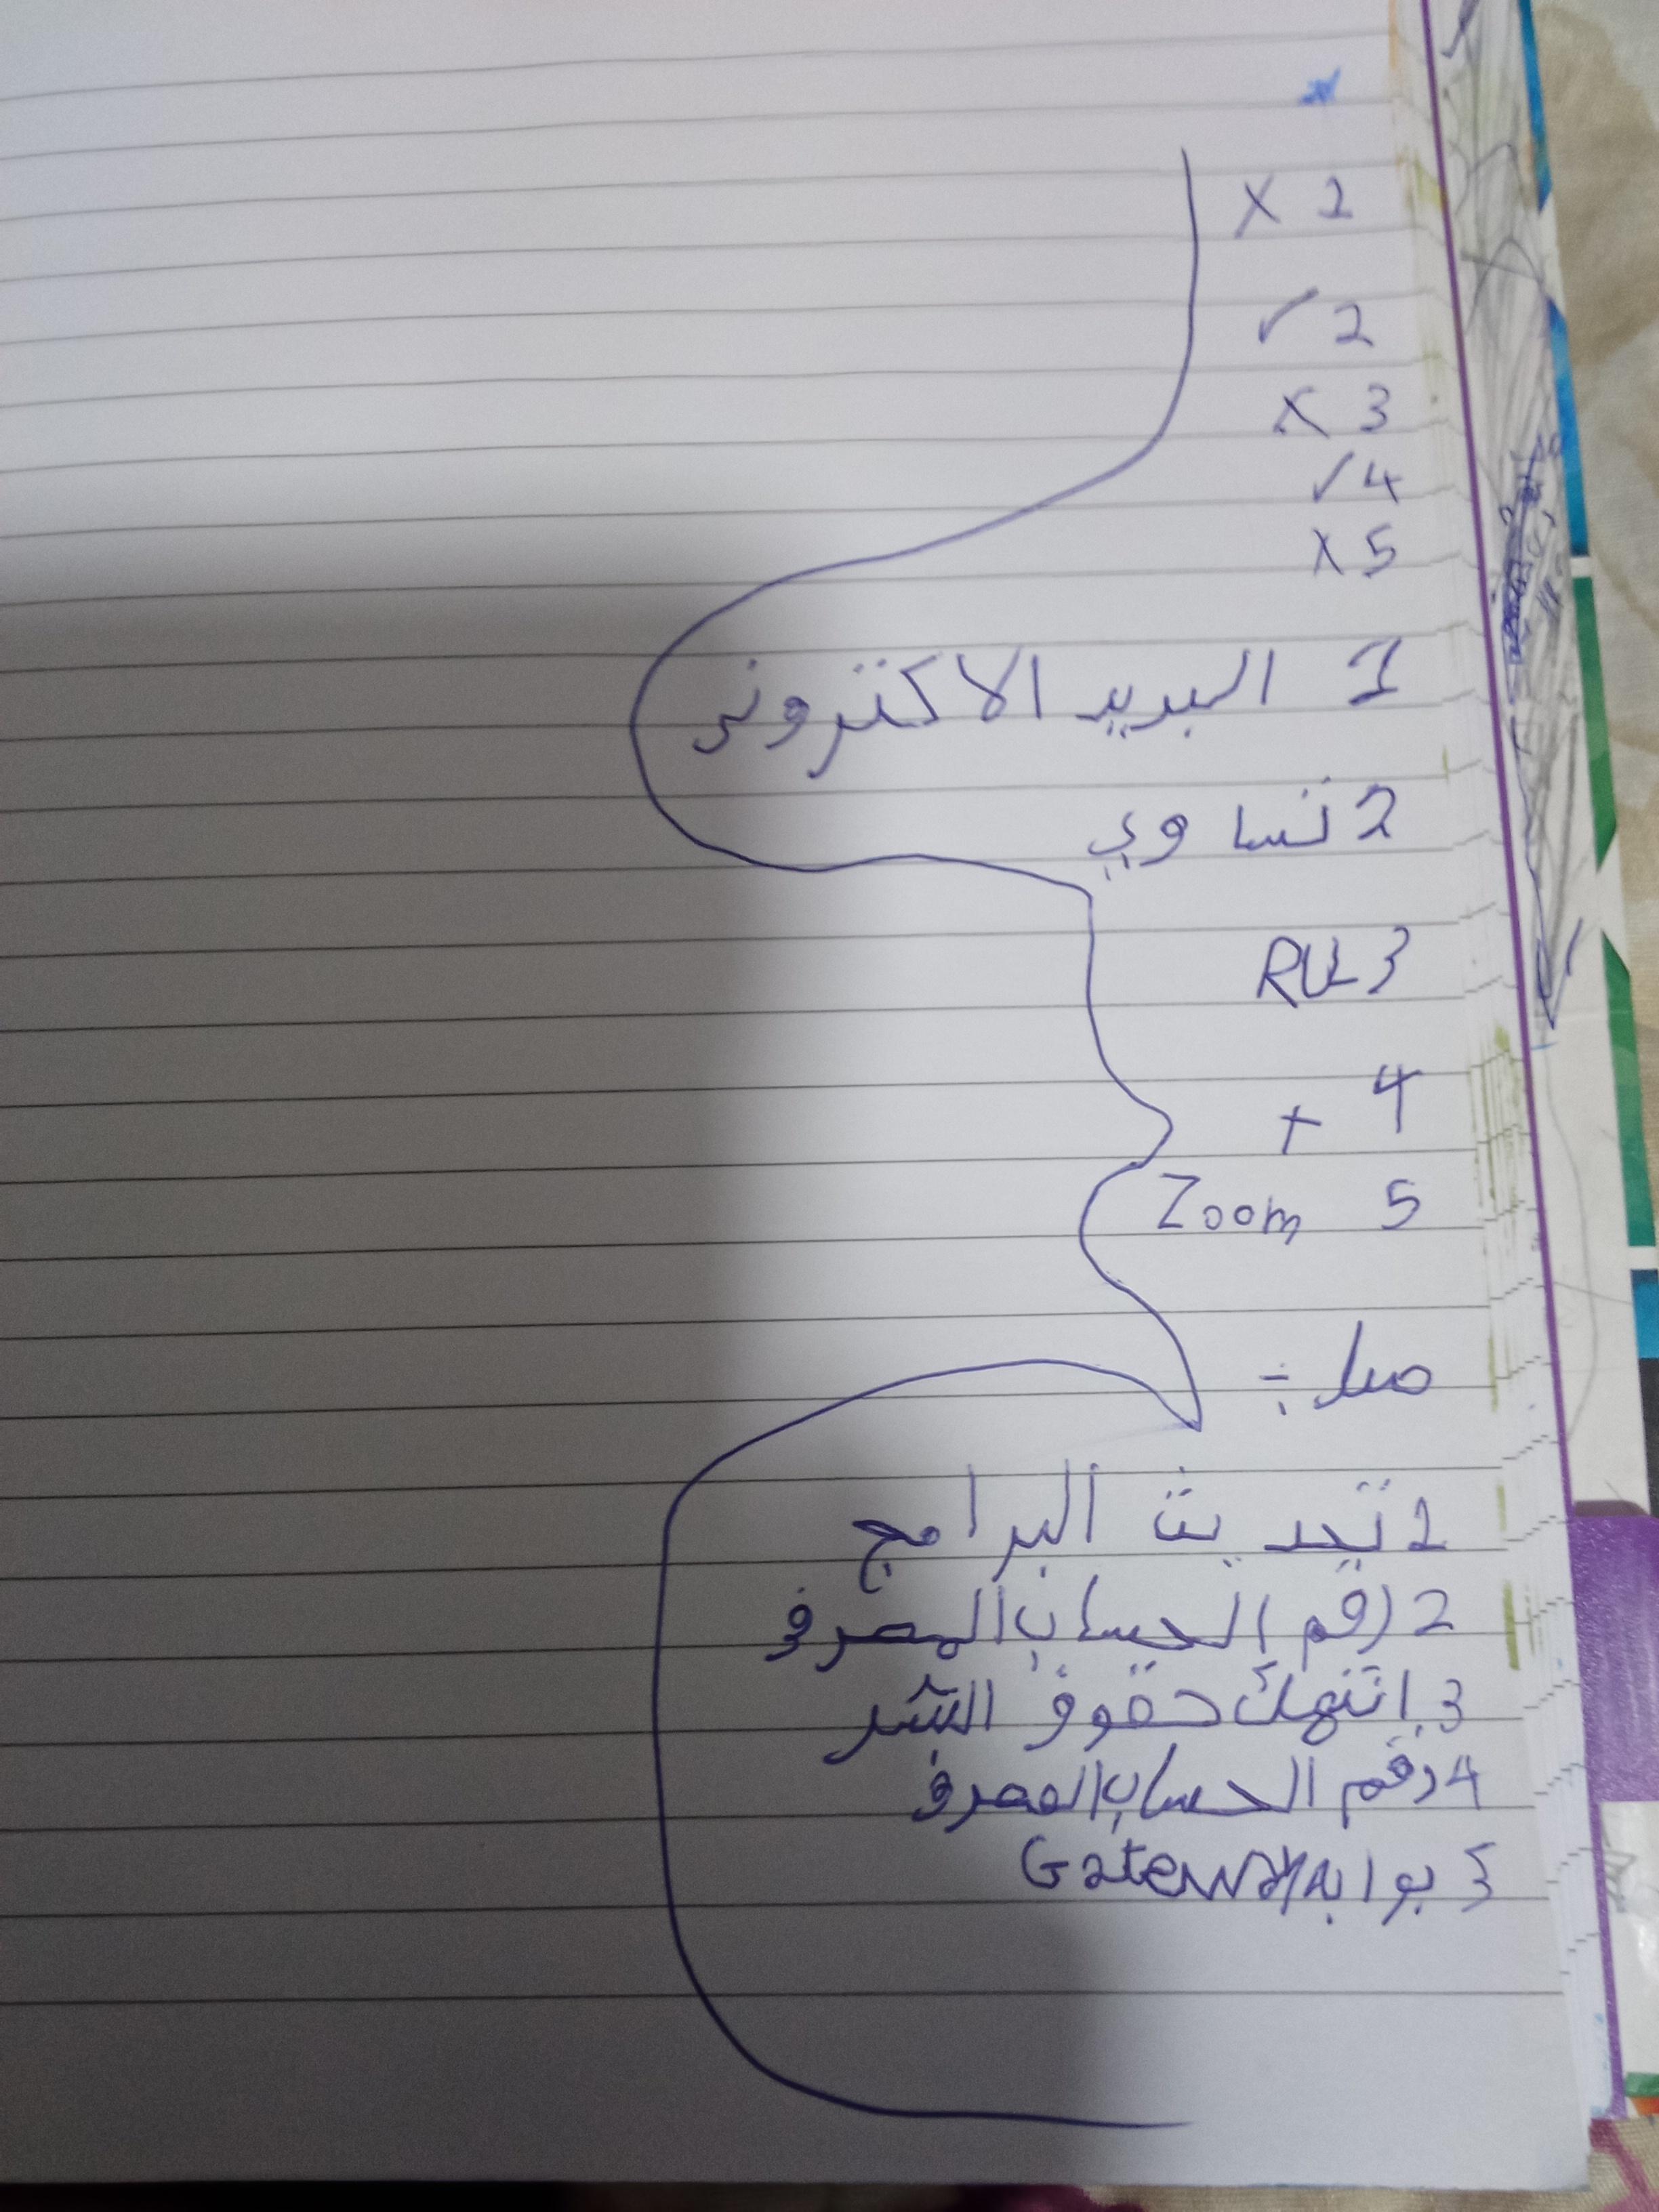 2 X
2 ✓
3 X
4 ✓
5 X
1 البريد الاكتروني
2 تساوي
3 RUL
4 +
5 Zoom
صل :-
1 تحديث البرامج
2 رقم الحساب المصرفي
3. انتهك حقوق النشر
4 رقم الحساب المصرفي
5 بوابه Gateway